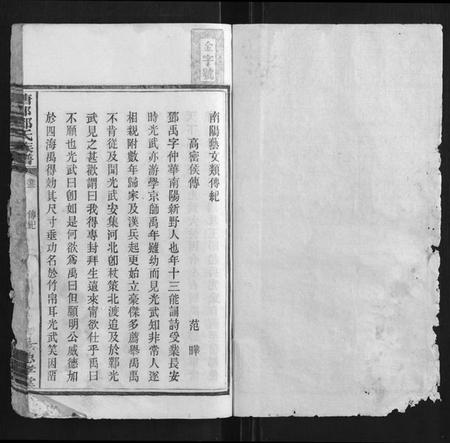 金字號
南陽藝文類傳紀
高密侯傳
范曄
鄧禹字仲華南陽新野人也年十三能誦詩受業長安
時光武亦游學京師禹年雖幼而見光武知非常人遂
相親附數年歸家及漢兵起更始立豪傑多薦舉禹禹
不肯從及聞光武安集河北卽杖策北渡追及於鄴光
武見之甚歡謂曰我得專封拜生遠來甯欲仕乎禹曰
不願也光武曰卽如是何欲爲禹曰但願明公威德加
於四海禹得効其尺寸垂功名於竹帛耳光武笑因留
傳紀